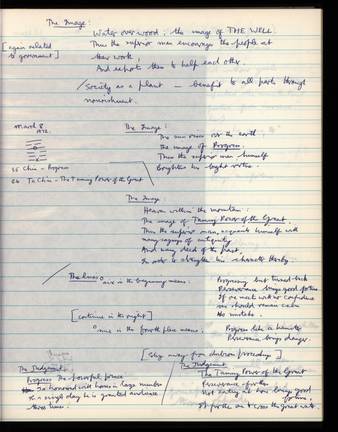 The Image:
Water over wood: the image of THE WELL.
[again related to government]
Thus the superior man encourages the people at
their work,
And exhorts them to help each other.
/Society as a plant – benefit to all parts through
nourishment.
March 8
The Image:
The sun rises over the earth
The image of Progress.
Thus the superior man himself
Brightens his bright virtue.
35 Chin – Progress
26 Ta Chu – The Taming Power of the Great
The Image
Heaven within the mountain:
The image of Taming Power of the Great.
Thus the superior man acquaints himself with
many sayings of antiquity
And many deeds of the past
In order to strengthen his character thereby
The lines
nine in the beginning means:
Progressing but turned back
Perseverance brings good fortune
If one meets with no confidence
one should remain calm
No mistake.
[continue in the right]
nine in the fourth place means:
Progress like a hamster
Perseverance brings danger.
[Stay away from dubious proceedings]
The Judgment
Progress. The powerful prince
Is honored with horses in large numbers
In a single day he is granted audience
three times.
The Judgment
The Taming Power of the Great
Perseverance furthers
Not eating at home brings good
fortune.
It furthers one to cross the great water.